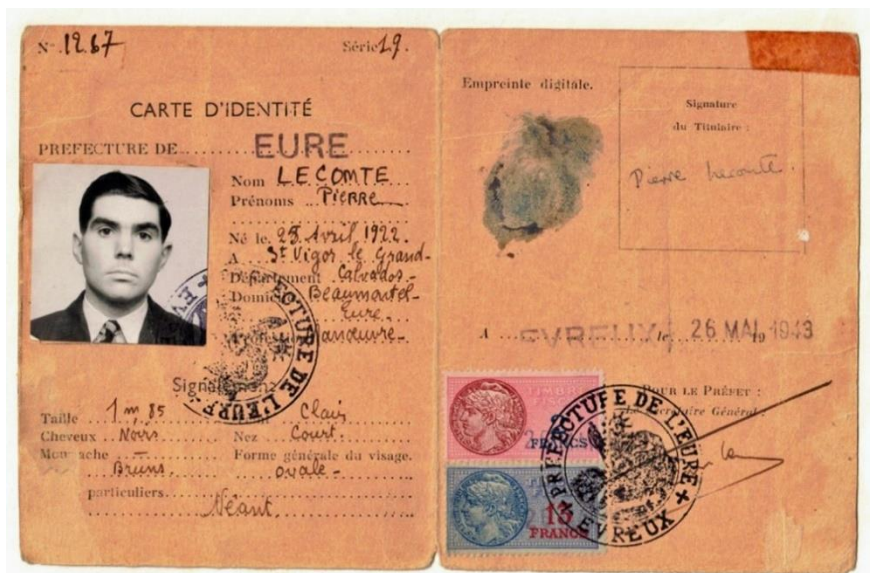 N° 1267 Série 19.
CARTE D'IDENTITÉ
PREFECTURE DE EURE
Nom LECOMTE
Prénoms PIERRE
Né le 25 Avril 1922.
A St Vigor le Grand-
Département Calvados-
Beaumontel-
Eure
Signalement
Taille 1m,85 Clair
Cheveux Noirs Nez Court.
Forme générale du visage.
Bruns. ovale-
particuliers Néant.
PREFECTURE DE L'EURE
Empreinte digitale.
Signature
du Titulaire :
Pierre Lecomte
A EVREUX, le 26 MAI 1943
POUR LE PRÉFET :
Le Secrétaire Général,
TIMBRE
FRANCS
13
FRANCS
PREFECTURE DE L'EURE
EVREUX